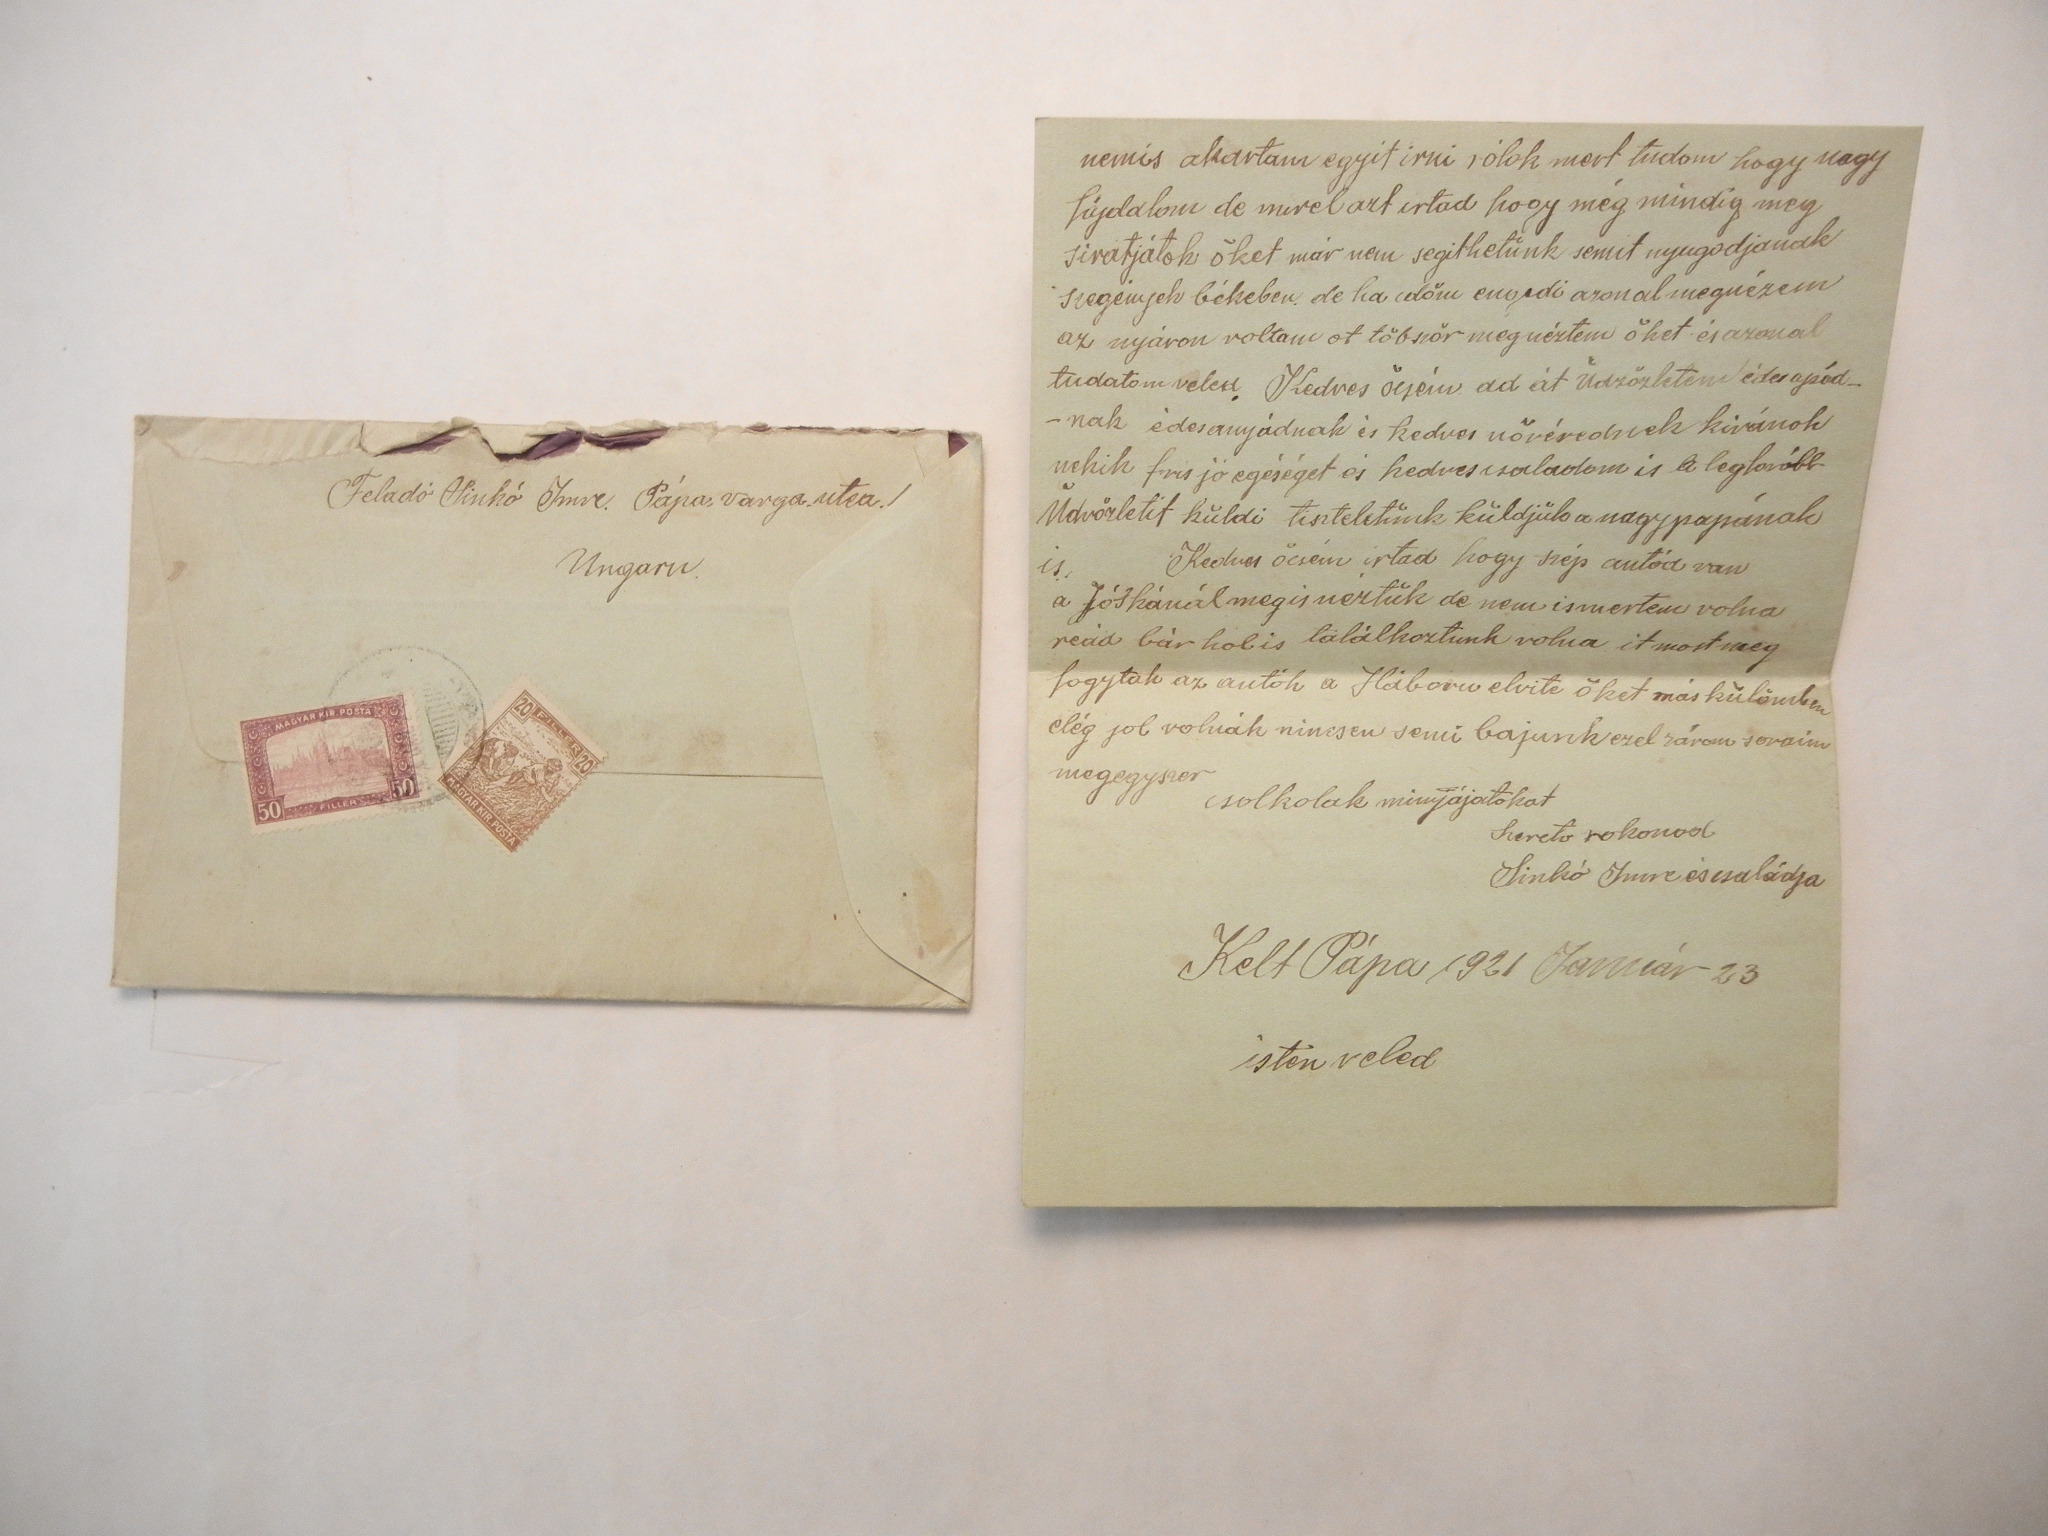 Feladó Sinkó Imre. Pápa, varga-utca.1
Ungarn.
MAGYAR KIR. POSTA
50 FILLER 50
20 FILLER 20
MAGYAR KIR. POSTA
nemis akartam egyit irni rólok mert tudom hogy nagy
fájdalom de mivel azt irtad hogy még mindig meg
siratjátok őket már nem segithetünk semit nyugodjanak
szegények békeben. de ha időm engedi azonal megnézem
az nyáron voltam ot töbször megnéztem őket és azonal
tudatom veled. Kedves öcsém ad át Üdvözletem édesapád-
-nak édesanyádnak és kedves nővérednek kivánok
nekik fris jó egéséget és kedves csaladom is a legforóbb
Üdvözletit küldi tiszteletünk küldjük a nagypapának
is. Kedves öcsém irtad hogy szép autód van
a Jóskánál megis néztük de nem ismertem volna
reád bár hol is találkoztunk volna it most meg
fogytak az autók a Háboru elvite őket más külömben
elég jol volnák nincsen semi bajunk ezel zárom soraim
megegyszer
csolkolak minyájatokat
Szerető rokonod
Sinkó Imre és családja
Kelt Pápa 1921 Január 23
isten veled